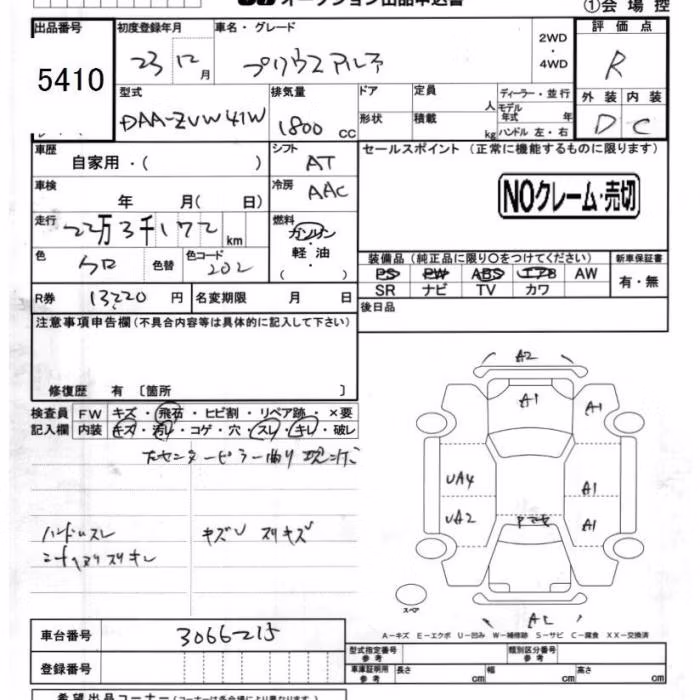 オークション出品申込書
①会場控
出品番号 初度登録年月 車名・グレード 評価点
5410 23 12月 プリウスアルファ 2WD・4WD R
型式 排気量 ドア 定員 人 ディーラー・並行 外装 内装
DAA-ZVW41W 1800 cc 形状 積載 kg モデル年式 年 ハンドル 左・右 D C
車歴 自家用・( ) シフト AT セールスポイント (正常に機能するものに限ります)
車検 年 月( 日) 冷房 AAC NOクレーム・売切
走行 22万3千172 km 燃料 ガソリン・軽油・( )
色 クロ 色替 色コード 202
装備品(純正品に限り○をつけてください) 新車保証書
PS PW ABS エアB AW 有・無
SR ナビ TV カワ
R券 13220円 名変期限 月 日 後日品
注意事項申告欄(不具合内容等は具体的に記入して下さい)
修復歴 有〔箇所 〕
検査員 FW キズ・飛石・ヒビ割・リペア跡・×要
記入欄 内装 キズ・汚れ・コゲ・穴・スレ・キレ・破レ
センターピラー曲り
ハンドルスレ キズU スリキズ
スリキレ
A2
A1 A1
UA4 A1
UA2 A1
スペア
A-キズ E-エクボ U-凹み W-補修跡 S-サビ C-腐食 XX-交換済
車台番号 3066215 型式指定番号 参考 類別区分番号 参考
登録番号 車庫証明用 参考 長さ cm 幅 cm 高さ cm
希望出品コーナー(コーナーは各会場により異なります)